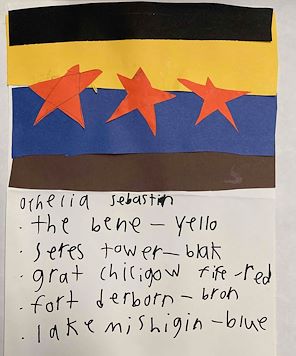 ophelia sebastin
· the bene – yello
· seres tower – blak
· grat chicigow fife - red
· fort derborn – bron
· lake mishigin – blue